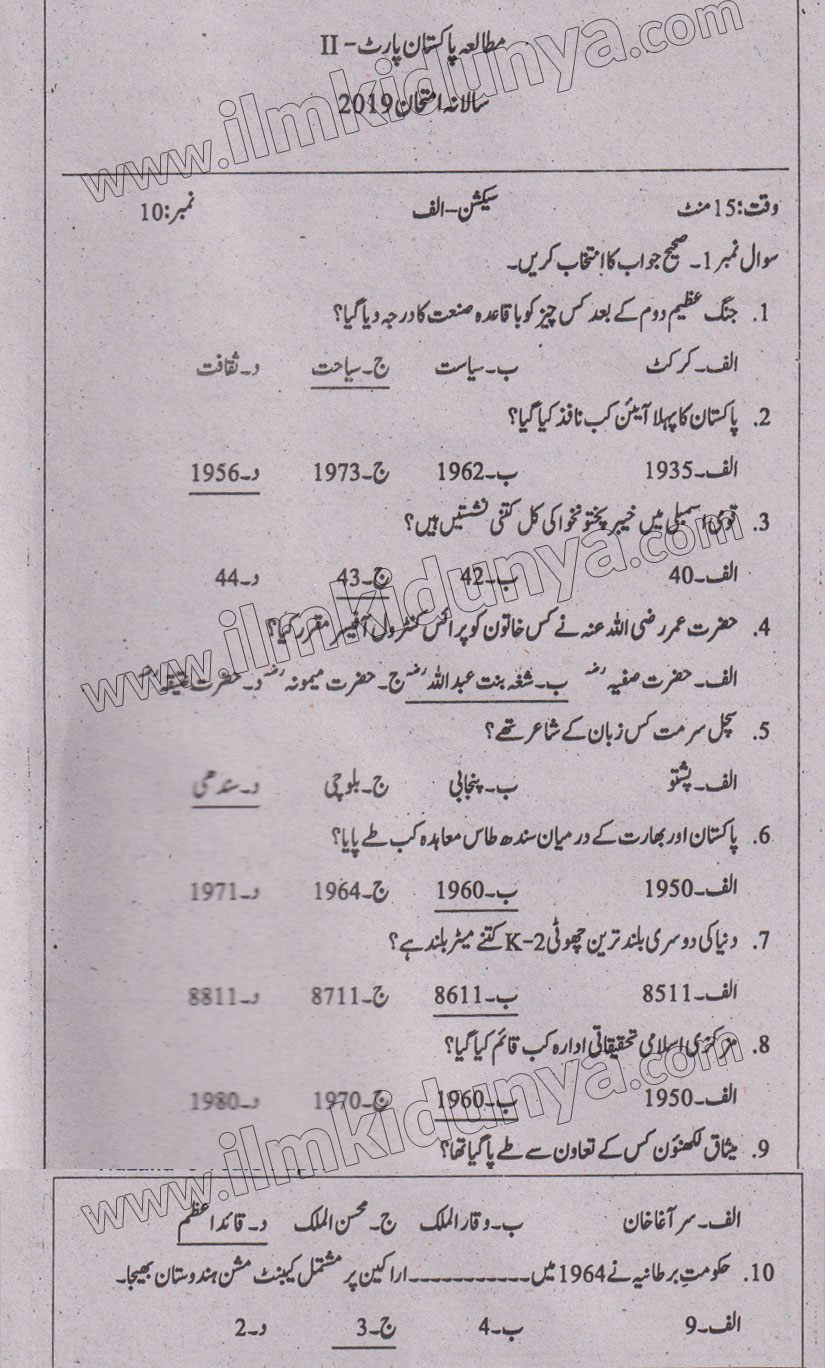 مطالعہ پاکستان پارٹ - II
سالانہ امتحان 2019
وقت: 15 منٹ سیکشن-الف نمبر: 10
سوال نمبر 1۔ صحیح جواب کا انتخاب کریں۔
1. جنگ عظیم دوم کے بعد کس چیز کو باقاعدہ صنعت کا درجہ دیا گیا؟
الف۔ کرکٹ ب۔ سیاست ج۔ سیاحت د۔ ثقافت
2. پاکستان کا پہلا آیئن کب نافذ کیا گیا؟
الف۔ 1935 ب۔ 1962 ج۔ 1973 د۔ 1956
3. قومی اسمبلی میں خیبر پختونخوا کی کل کتنی نشستیں ہیں؟
الف۔ 40 ب۔ 42 ج۔ 43 د۔ 44
4. حضرت عمر رضی اللہ عنہ نے کس خاتون کو پرائس کنٹرول آفیسر مقرر کیا؟
الف۔ حضرت صفیہ رضہ ب۔ شغہ بنت عبداللہ رضہ ج۔ حضرت میمونہ رضہ د۔ حضرت
5. سچل سرمت کس زبان کے شاعر تھے؟
الف۔ پشتو ب۔ پنجابی ج۔ بلوچی د۔ سندھی
6. پاکستان اور بھارت کے درمیان سندھ طاس معاہدہ کب طے پایا؟
الف۔ 1950 ب۔ 1960 ج۔ 1964 د۔ 1971
7. دنیا کی دوسری بلند ترین چھوٹی K-2 کتنے میٹر بلند ہے؟
الف۔ 8511 ب۔ 8611 ج۔ 8711 د۔ 8811
8. مرکزی اسلامی تحقیقاتی ادارہ کب قائم کیا گیا؟
الف۔ 1950 ب۔ 1960 ج۔ 1970 د۔ 1980
9. میثاق لکھنؤن کس کے تعاون سے طے پا گیا تھا؟
الف۔ سر آغا خان ب۔ وقار الملک ج۔ محسن الملک د۔ قائد اعظم
10. حکومتِ برطانیہ نے 1964 میں ــــــــــــــــ اراکین پر مشتمل کیبنٹ مشن ہندوستان بھیجا۔
الف۔ 9 ب۔ 4 ج۔ 3 د۔ 2
www.ilmkidunya.com
www.ilmkidunya.com
www.ilmkidunya.com